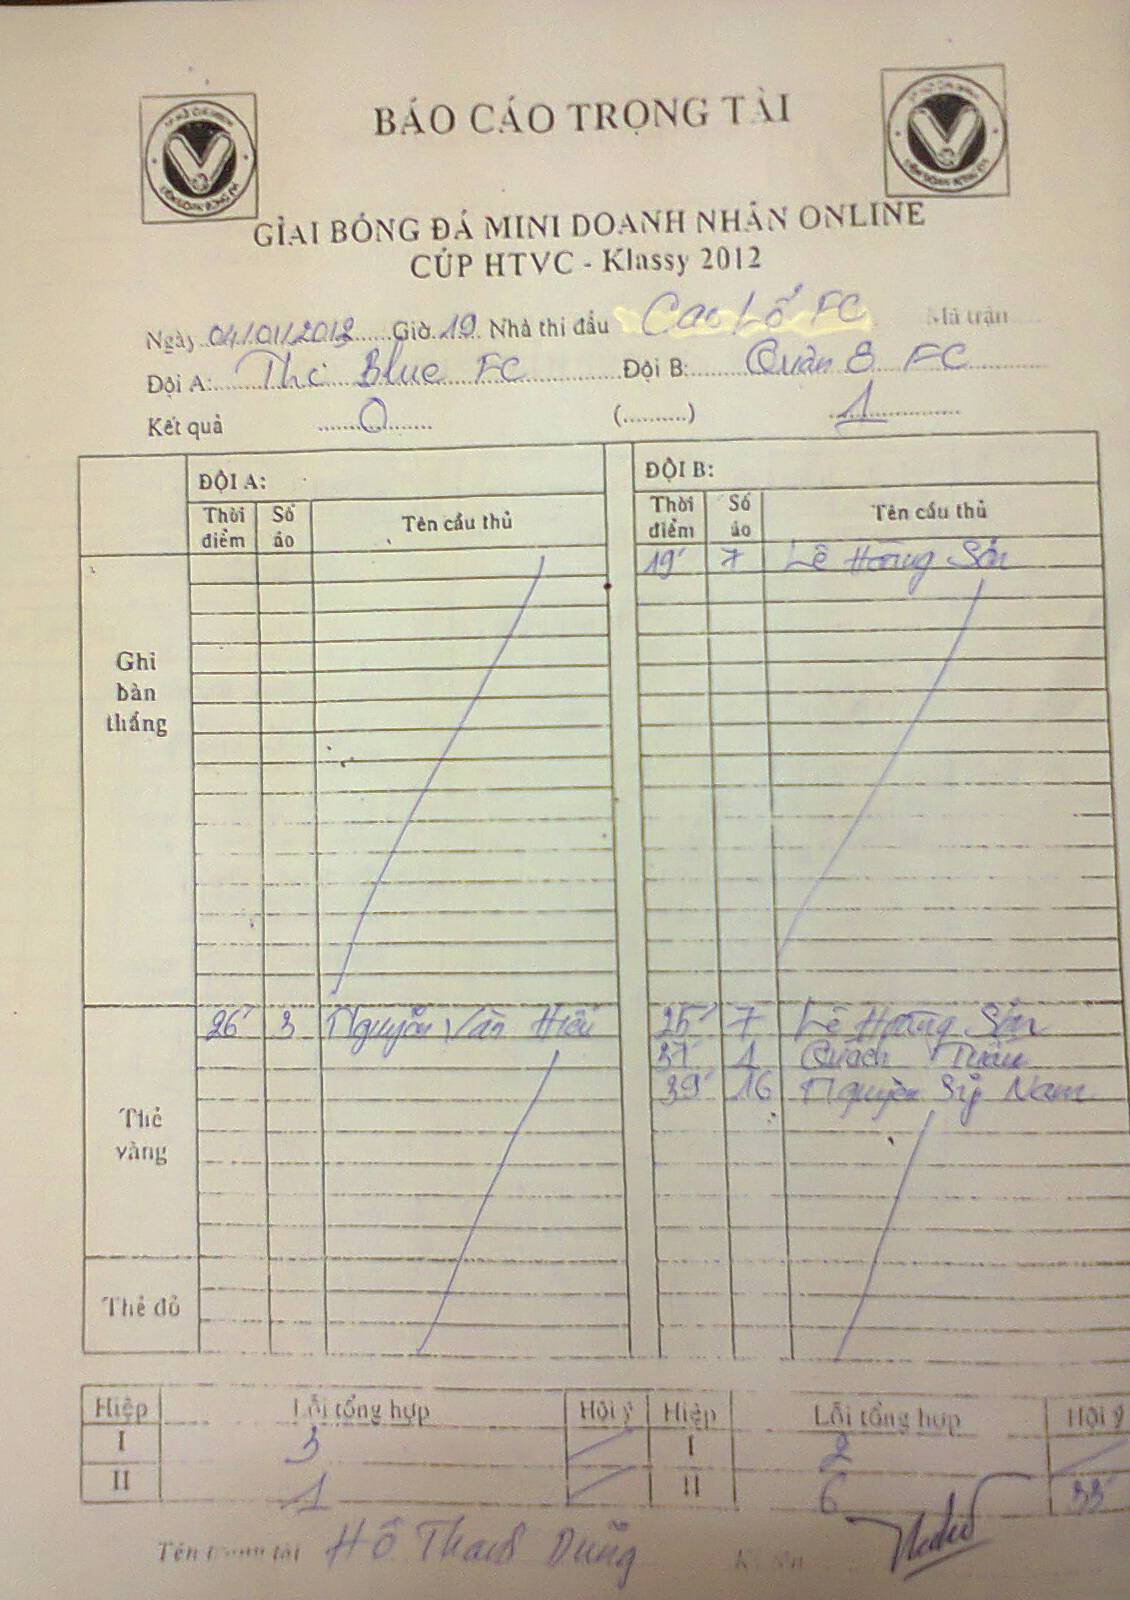 BÁO CÁO TRỌNG TÀI
GIẢI BÓNG ĐÁ MINI DOANH NHÂN ONLINE
CÚP HTVC - Klassy 2012
Ngày 04/01/2013 Giờ 19 Nhà thi đấu Cao Lỗ FC Mã trận
Đội A: The Blue FC Đội B: Quận 8 FC
Kết quả 0 (..........) 1
ĐỘI A: ĐỘI B:
Thời điểm Số áo Tên cầu thủ Thời điểm Số áo Tên cầu thủ
Ghi bàn thắng 19' 7 Lê Hoàng Sơn
Thẻ vàng 26' 3 Nguyễn Văn Hiếu 25' 7 Lê Hoàng Sơn
37' 1 Quách Tuấn
39' 16 Nguyễn Sỹ Nam
Thẻ đỏ
Hiệp Lỗi tổng hợp Hội ý Hiệp Lỗi tổng hợp Hội ý
I 3 I 2
II 1 II 6 33'
Tên trọng tài Hồ Thanh Dũng